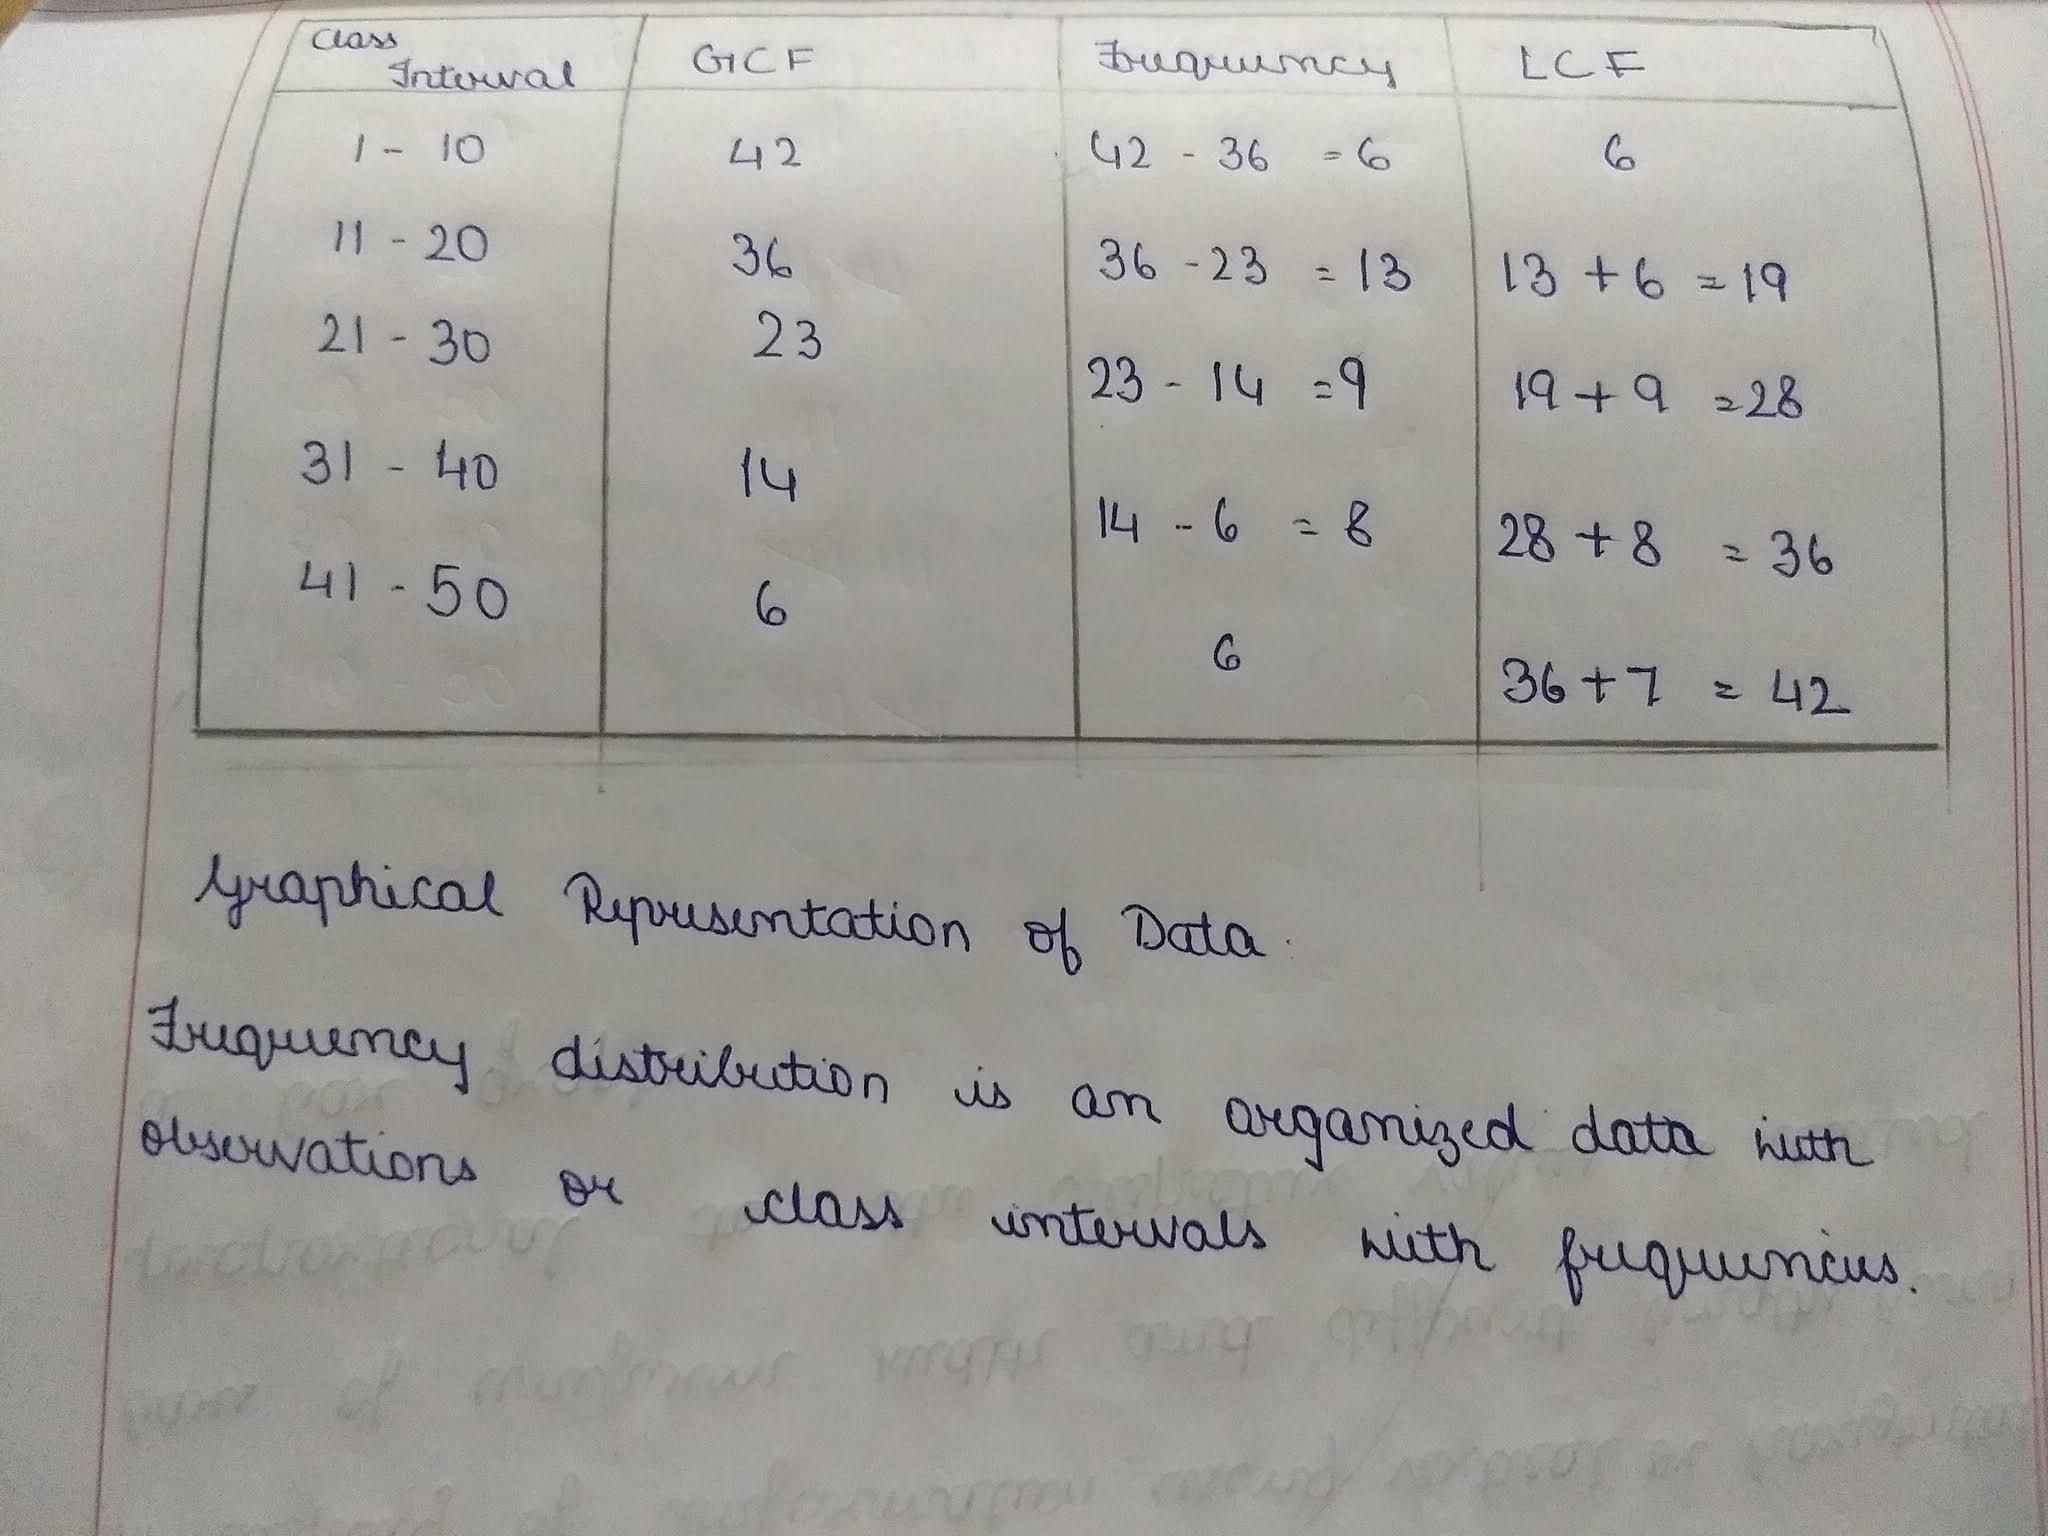 Class Interval GCF Frequency LCF
1 - 10 42 42 - 36 = 6 6
11 - 20 36 36 - 23 = 13 13 + 6 = 19
21 - 30 23 23 - 14 = 9 19 + 9 = 28
31 - 40 14 14 - 6 = 8 28 + 8 = 36
41 - 50 6 6 36 + 7 = 42
Graphical Representation of Data.
Frequency distribution is an organized data with
observations or class intervals with frequencies.